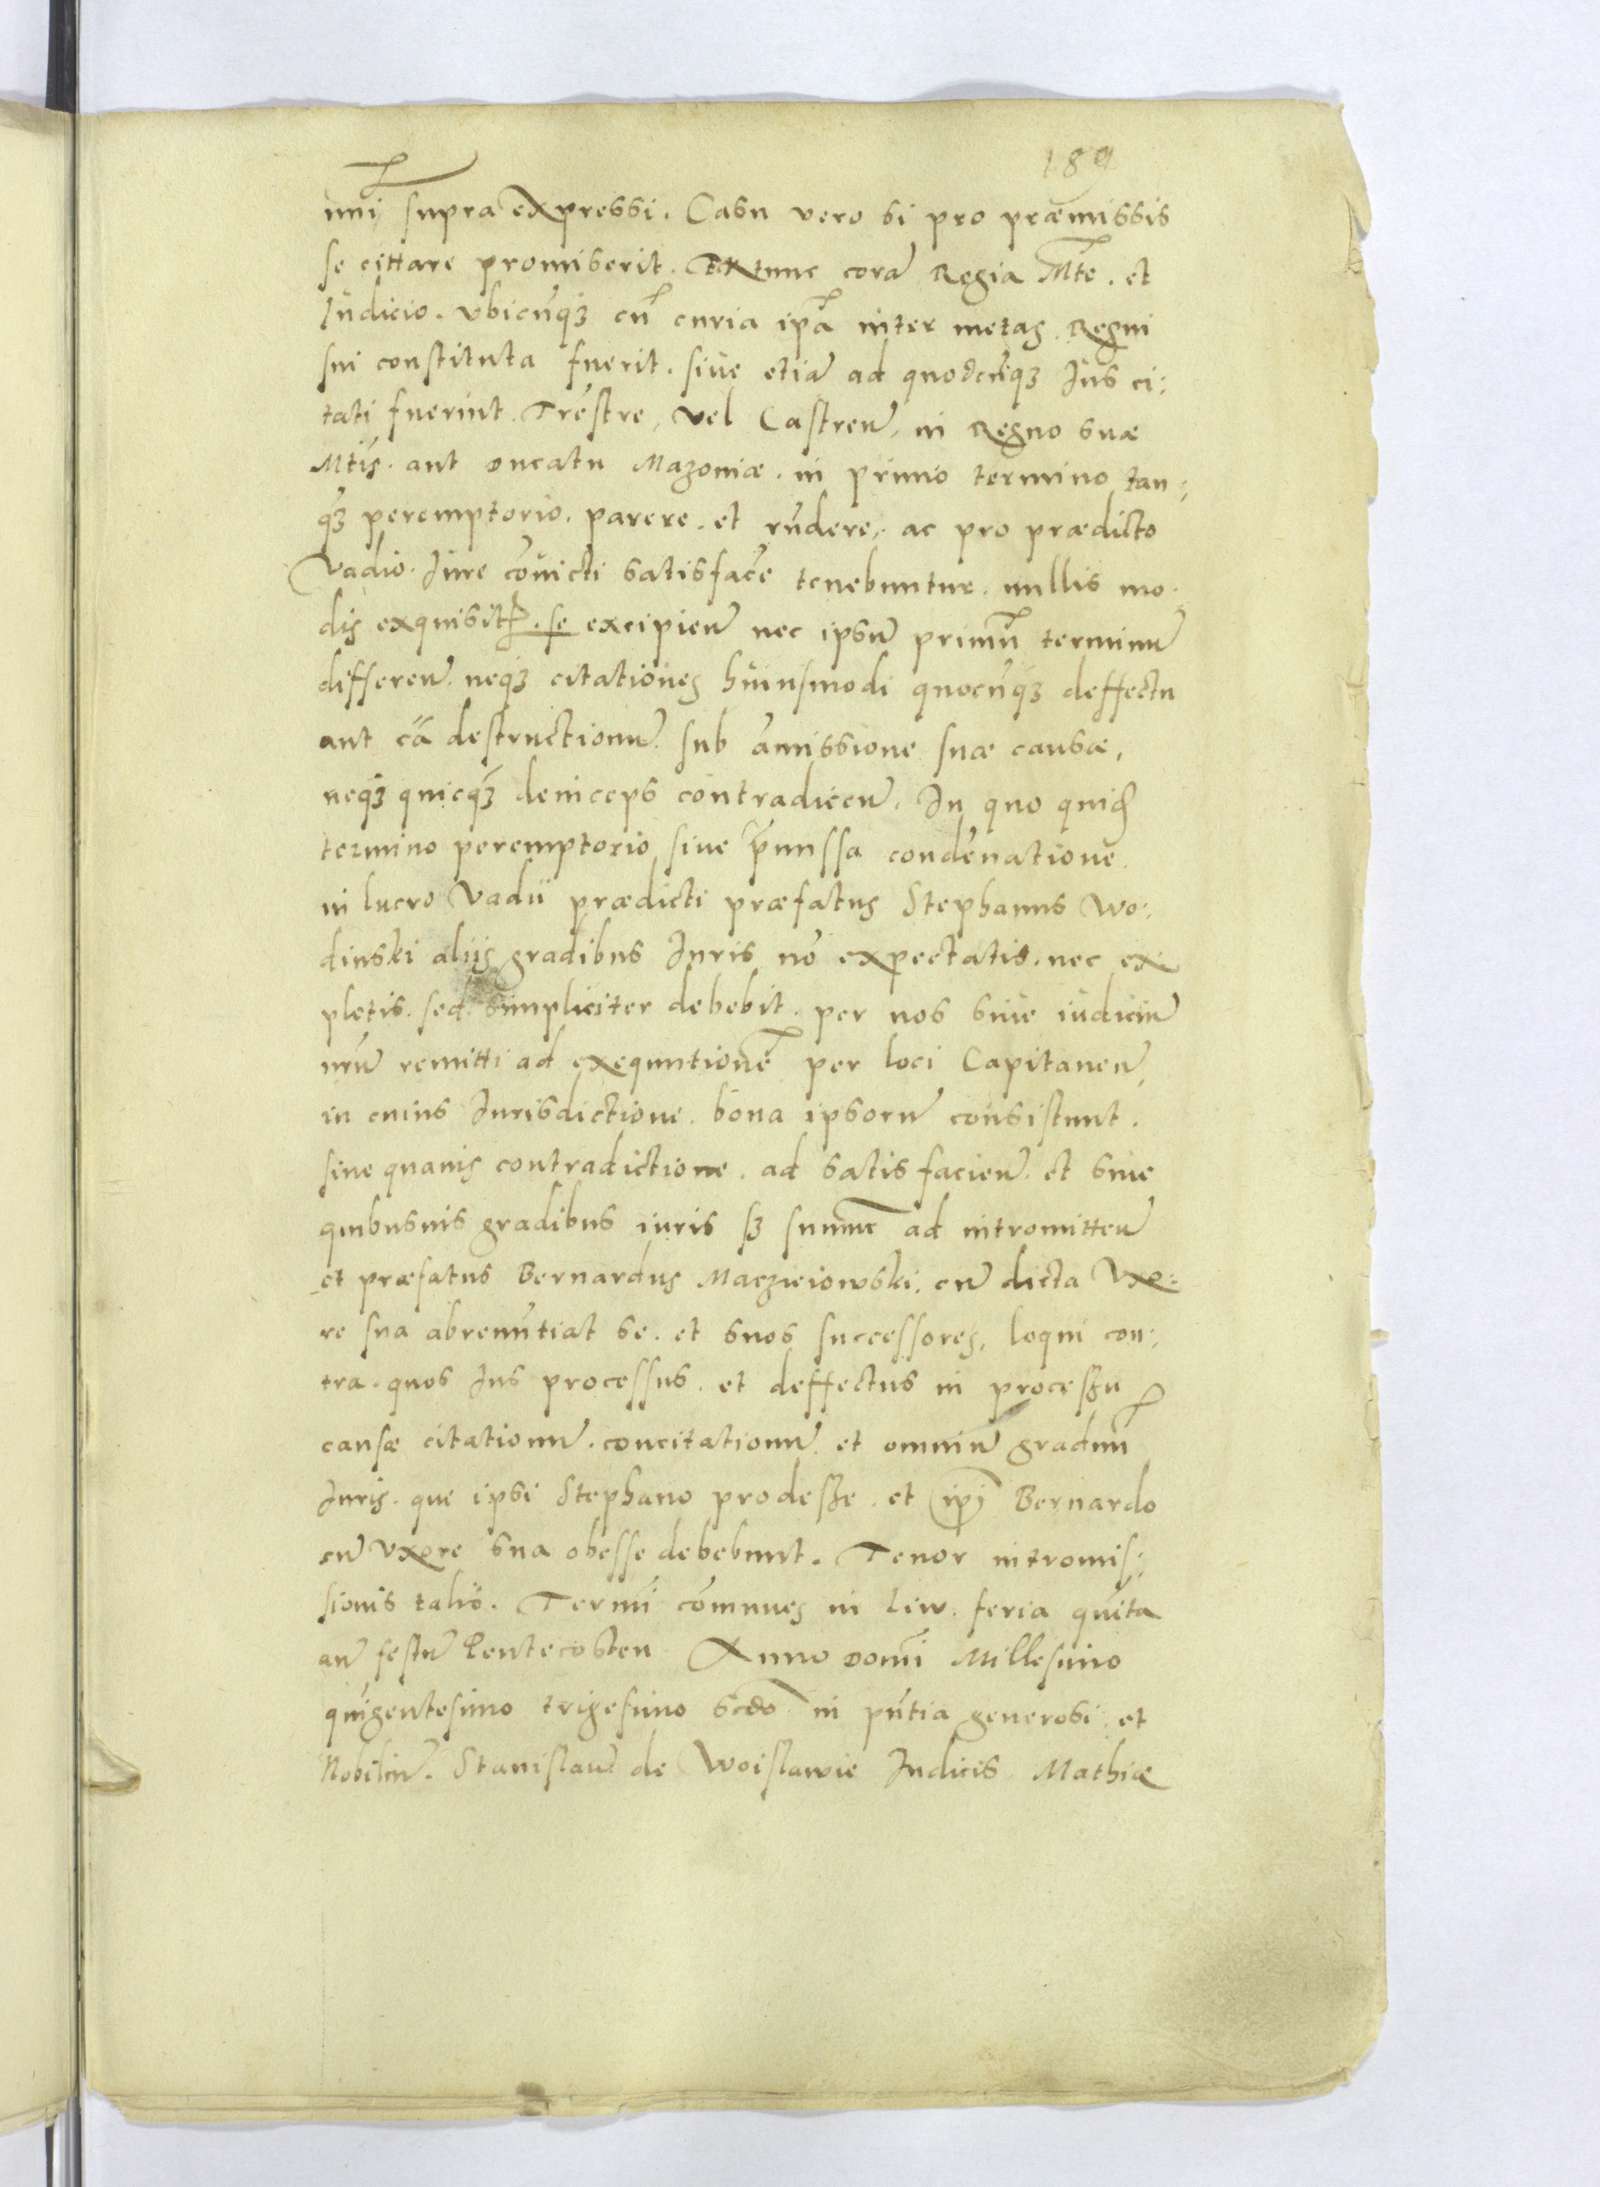 189
uni supra expressi. Casu vero si pro præmissis
se cittare promiserit. Extunc corā Regia Mte. et
Iudicio. vbicūqȝ cū curia ipā inter metas Regni
sui constituta fuerit. siue etiā ad quodcūqȝ Ius ci:
tati fuerint. Trestre, vel Castren, in Regno suæ
Mtis. aut ducatu Mazoniæ. in primo termino tan:
qȝ peremptorio. parere. et rūdere, ac pro prædicto
Vadio. Iure cōuicti satisface tenebuntur. nullis mo:
dis exquisit. se excipien nec ipsū primū terminū
differen. neqȝ citationes huiusmodi quocūqȝ deffectu
aut cā destructionū. sub amissione suæ causæ,
neqȝ quicqȝ deinceps contradicen. In quo quid
termino peremptorio siue p̄missa condēnatione.
in lucro Vadii prædicti præfatus Stephanus Wo:
dinski alijs gradibus Iuris nō expectatis. nec ex
pletis. sed simpliciter debebit. per nos siue iudiciū
nrū remitti ad exequutionē per loci Capitaneū,
in cuius Iurisdictione. bona ipsorū consistunt.
sine quauis contradictione. ad satisfacien. et sine
quibusuis gradibus iuris sȝ summe ad intromitten
et præfatus Bernardus Maczieiowski. cū dicta Vxo:
re sua abrenūtiat se. et suos successores, loqui con:
tra. quos Ius processus. et deffectus in processu
causæ citationū. concitationū. et omniū graduū
Iuris. que ipsi Stephano prodesse. et ipi Bernardo
cū vxore sua obesse debebunt. Tenor intromis:
sionis talis. Termī cōmunes in Liw. feria quīta
an festū Pentecosten Anno domī Millesimo
quīgentesimo trigesimo scdo in pntia generosi et
Nobiliū. Stanislaui de Woislawie Iudicis Mathiæ